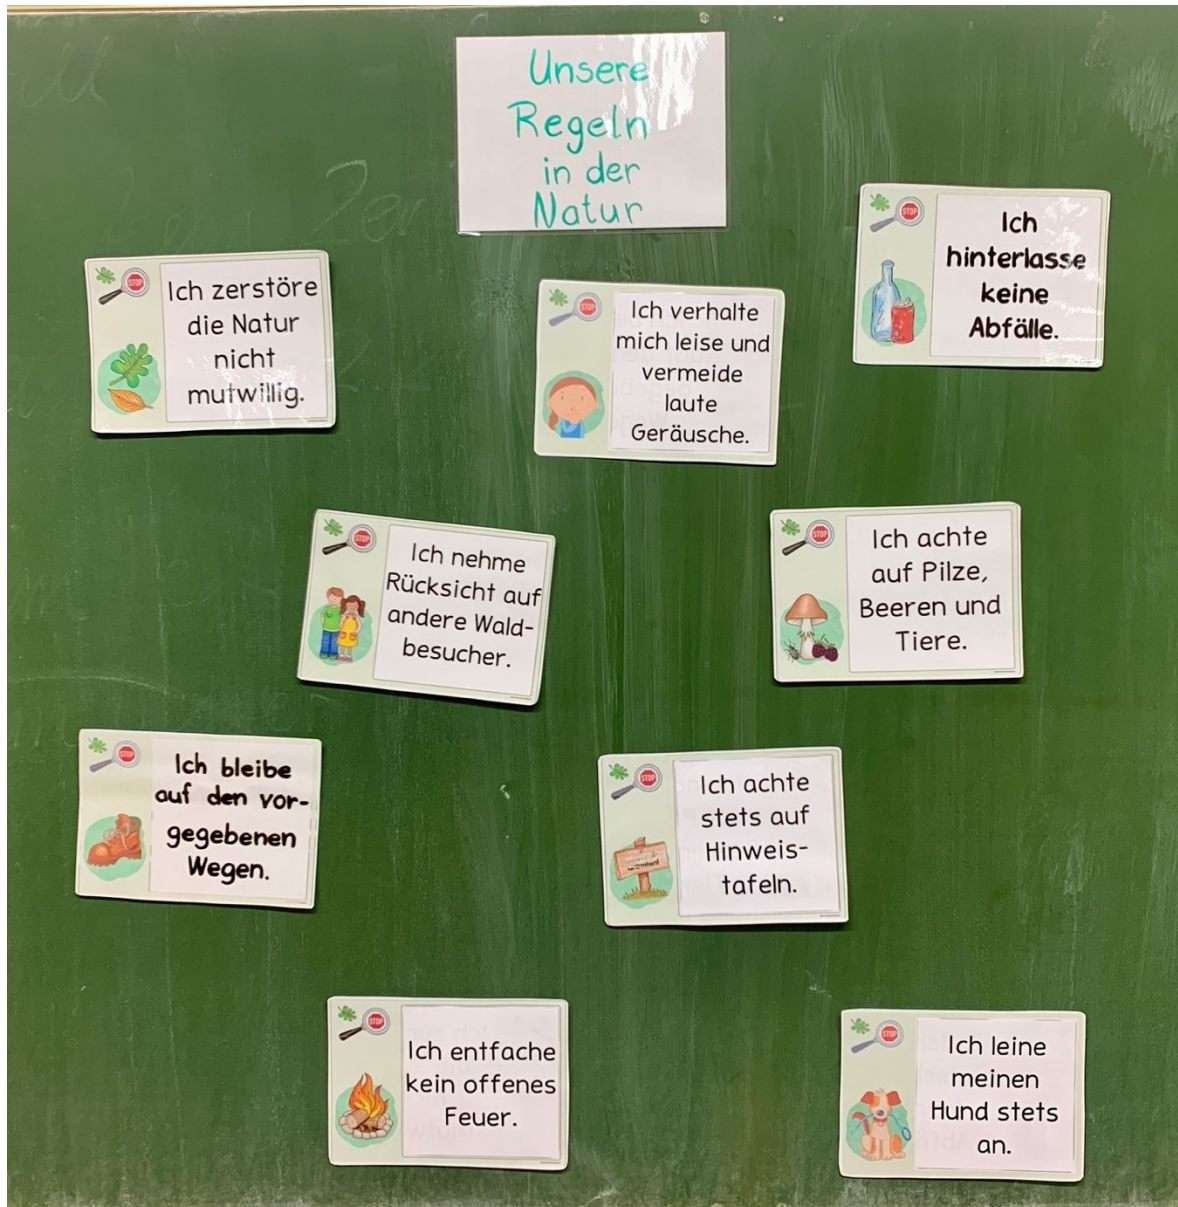 Unsere
Regeln
in der
Natur
Ich
hinterlasse
keine
Abfälle.
STOP
Ich zerstöre
die Natur
nicht
mutwillig.
STOP
Ich verhalte
mich leise und
vermeide
laute
Geräusche.
STOP
Ich nehme
Rücksicht auf
andere Wald-
besucher.
STOP
Ich achte
auf Pilze,
Beeren und
Tiere.
STOP
Ich bleibe
auf den vor-
gegebenen
Wegen.
STOP
Ich achte
stets auf
Hinweis-
tafeln.
STOP
Ich entfache
kein offenes
Feuer.
STOP
Ich leine
meinen
Hund stets
an.
STOP